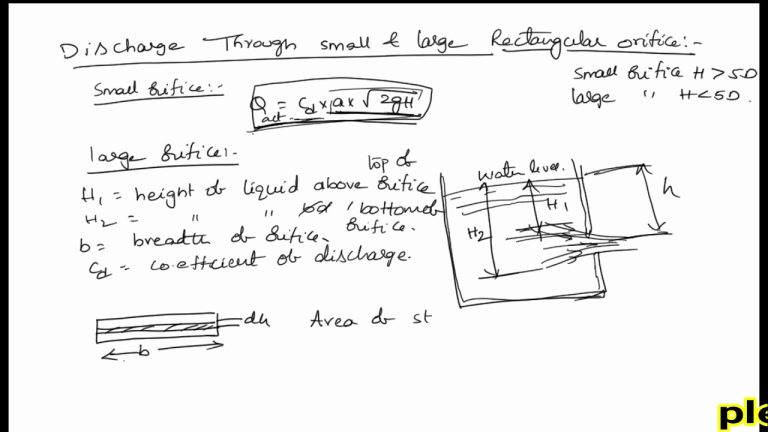 Discharge Through small & large Rectangular orifice:-
small orifice H > 5D
large " H < 5D.
Small orifice:-
Q act = Cd × a × √2gH
large orifice:-
H1 = height of liquid above top of orifice
H2 = " " " bottom of orifice.
b = breadth of orifice.
Cd = co-efficient of discharge.
water level.
H1
H2
h
dh
b
Area of st
ple